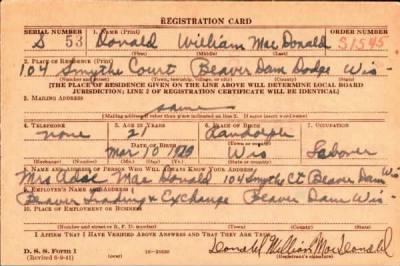 REGISTRATION CARD
SERIAL NUMBER 1. NAME (Print) ORDER NUMBER
S 53 Donald William MacDonald S1545
2. PLACE OF RESIDENCE (Print)
104 Smythe Court Beaver Dam Dodge Wis
(Number and street) (Town, township, village, or city) (County) (State)
[THE PLACE OF RESIDENCE GIVEN ON THE LINE ABOVE WILL DETERMINE LOCAL BOARD
JURISDICTION; LINE 2 OF REGISTRATION CERTIFICATE WILL BE IDENTICAL]
3. MAILING ADDRESS
same
[Mailing address if other than place indicated on line 2. If same insert word same]
4. TELEPHONE 5. AGE IN YEARS 6. PLACE OF BIRTH 7. OCCUPATION
none 21 Randolph
DATE OF BIRTH (Town or county)
Mar 10 Wis Laborer
(Exchange) (Number) (Mo.) (Day) (Yr.) (State or country)
8. NAME AND ADDRESS OF PERSON WHO WILL ALWAYS KNOW YOUR ADDRESS
Mrs Mac Donald 104 Smythe Ct Beaver Dam Wis
9. EMPLOYER'S NAME AND ADDRESS
Beaver Trading & Exchange Beaver Dam Wis
10. PLACE OF EMPLOYMENT OR BUSINESS
(Number and street or R. F. D. number) (Town) (County) (State)
I AFFIRM THAT I HAVE VERIFIED ABOVE ANSWERS AND THAT THEY ARE TRUE.
D. S. S. Form 1 Donald William MacDonald
(Revised 6-9-41) (Registrant's signature)